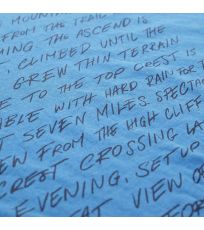 MOUNTAIN
FROM THE TRAIL
MING THE ASCEND IS
, CLIMBED UNTIL THE
GREW THIN TERRAIN
E TO THE TOP CREST IS
ABLE WITH HARD RAIN FOR T
T SEVEN MILES. SPECTAC
EW FROM THE HIGH CLIFF
CREST CROSSING LA
EVENING, SET UP
AT VIEW OF
FOR